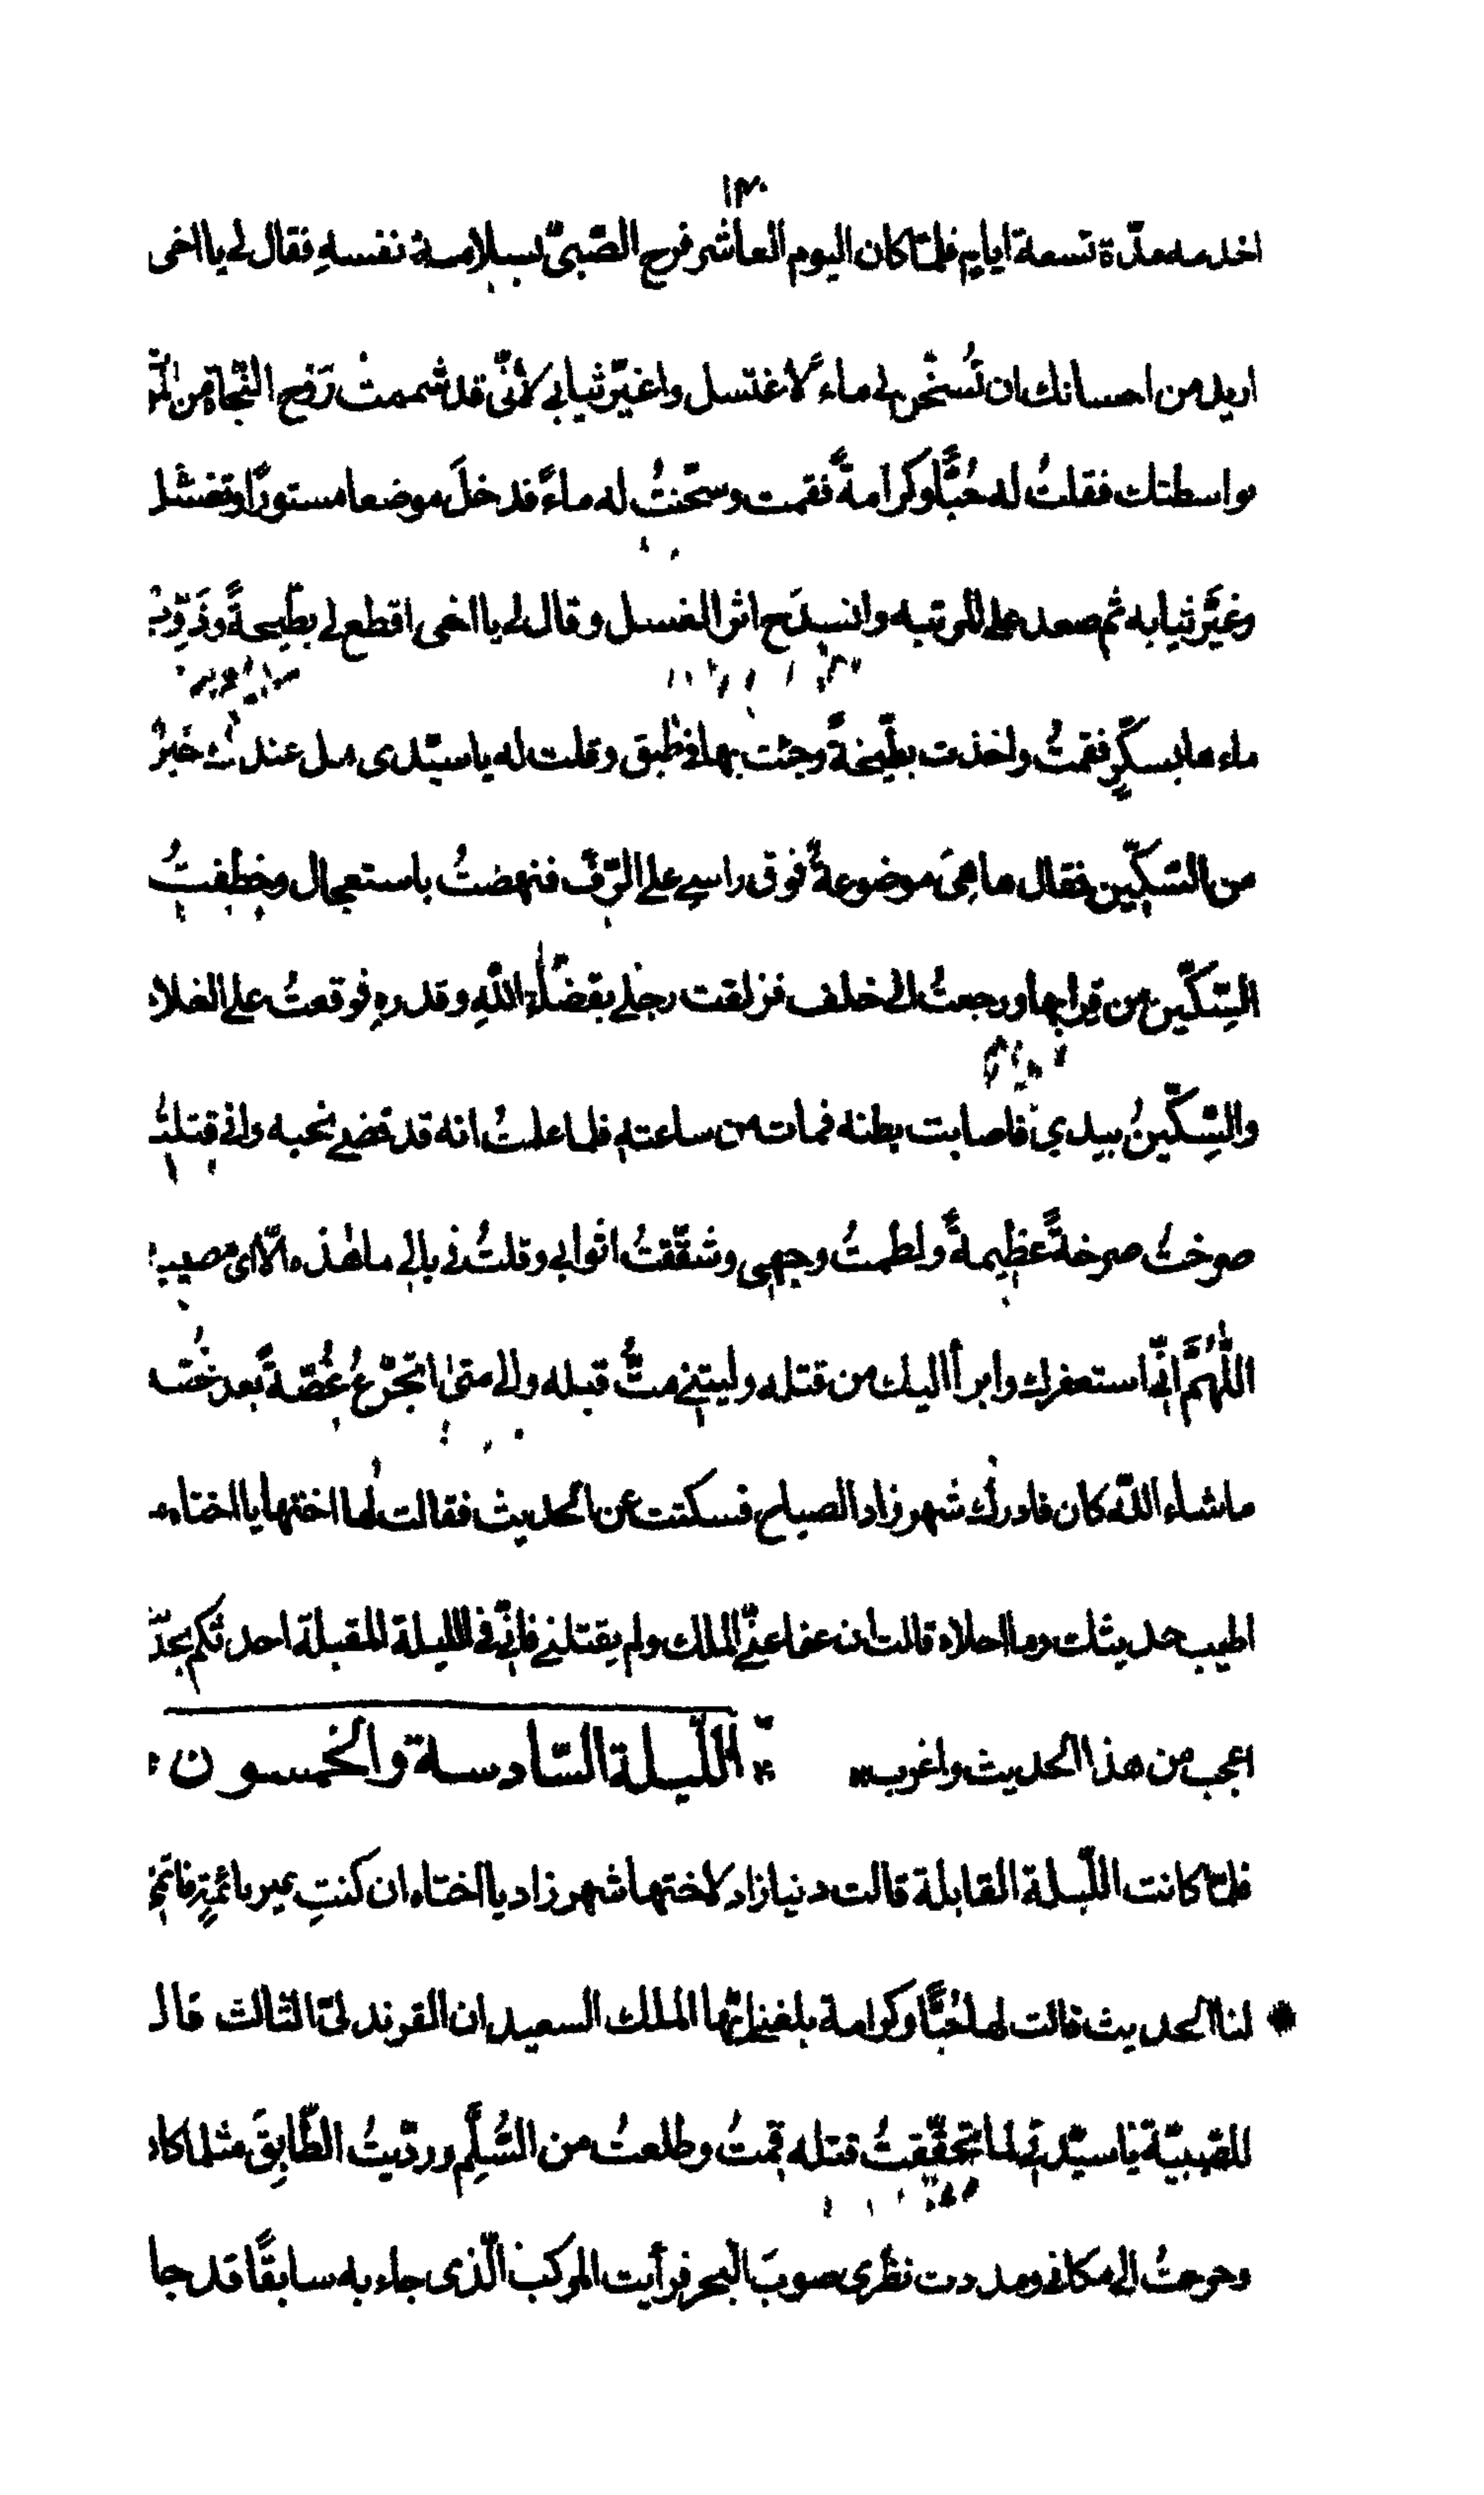 ١٣٠
اخدمه مدّة تسعة ايامٍ فلمّا كان اليوم العاشر فرح الصّبىّ بسلامة نفسهِ فقال لى يا اخى
اريد من احسانك ان تُسخّن لى ماءً لاغتسل واغيّر ثيابى لانّى قد شممتُ ريح النّجاة من
بواسطتك فقلتُ له حُبًّا وكرامةً فقمت وسخّنتُ له ماءً فدخلَ موضعا مستورًا وتغسّل
وغيَّر ثيابه ثم صعد على المرتبه وانسدَح اثر الغسل وقال لى يا اخى اقطع لى بطّيخةً وذَوِّب
ماء ها بسكّرٍ فقمتُ واخذت بطّيخةً وجئت بها فى طبق وقلت له يا سيّدى هل عندكَ خبرٌ
من السّكّين فقال ها هىَ موضوعةٌ فوق راسى على الرّفّ فنهضتُ باستعجال وخطِفتُ
السّكّين من قرابها ورجعتُ الى خلف فزلقت رجلى بقضآء اللّهِ وقدرهِ فوقعتُ على الغلام
والسّكّينُ بيدى فاصابت بطنه فمات من ساعتهِ فلما علمتُ انه قد قضى نحبه وانى قتلتُه
صرختُ صرخةً عظيمةً ولطمتُ وجهى وشقّقتُ اثوابى وقلتُ فى بالى ما هٰذه الّا اى مصيبه
اللّٰهُمَّ انّى استغفرك وابرأ اليك من قتله وليتنى متُّ قبله والى متى اتجرّعُ غُصّةً بعد
ما شاء اللّه كان فادرك شهرزاد الصباح فسكتت عن الحديث فقالت لها اختها يا اختاه ما
اطيب حديثك وما احلاه قالت ان عفا عنّى الملك ولم يقتلنى فانّى فى الليلة المقبلة احدثكم بحديث
اعجب من هذا الحديث واغرب الليلة السّادسة والخمسون
فلمّا كانت اللّيلة القابلة قالت دنيازاد لاختها شهرزاد يا اختاه ان كنتِ غير نائمةٍ فاتمّى
لنا الحديث قالت لها حُبًّا وكرامة بلغنى ايّها الملك السعيد ان القرندلىّ الثالث قال
للصّبيّة يا سيّدتى لما تحقّقتُ قتله قمتُ وطلعتُ من السُّلّم ورديتُ الطّابقَ مثلما كان
وخرجتُ الى مكانى ومددت نظرى صوبَ البحر فرأيت المركبَ الّذى جاء به سابقًا قد جا